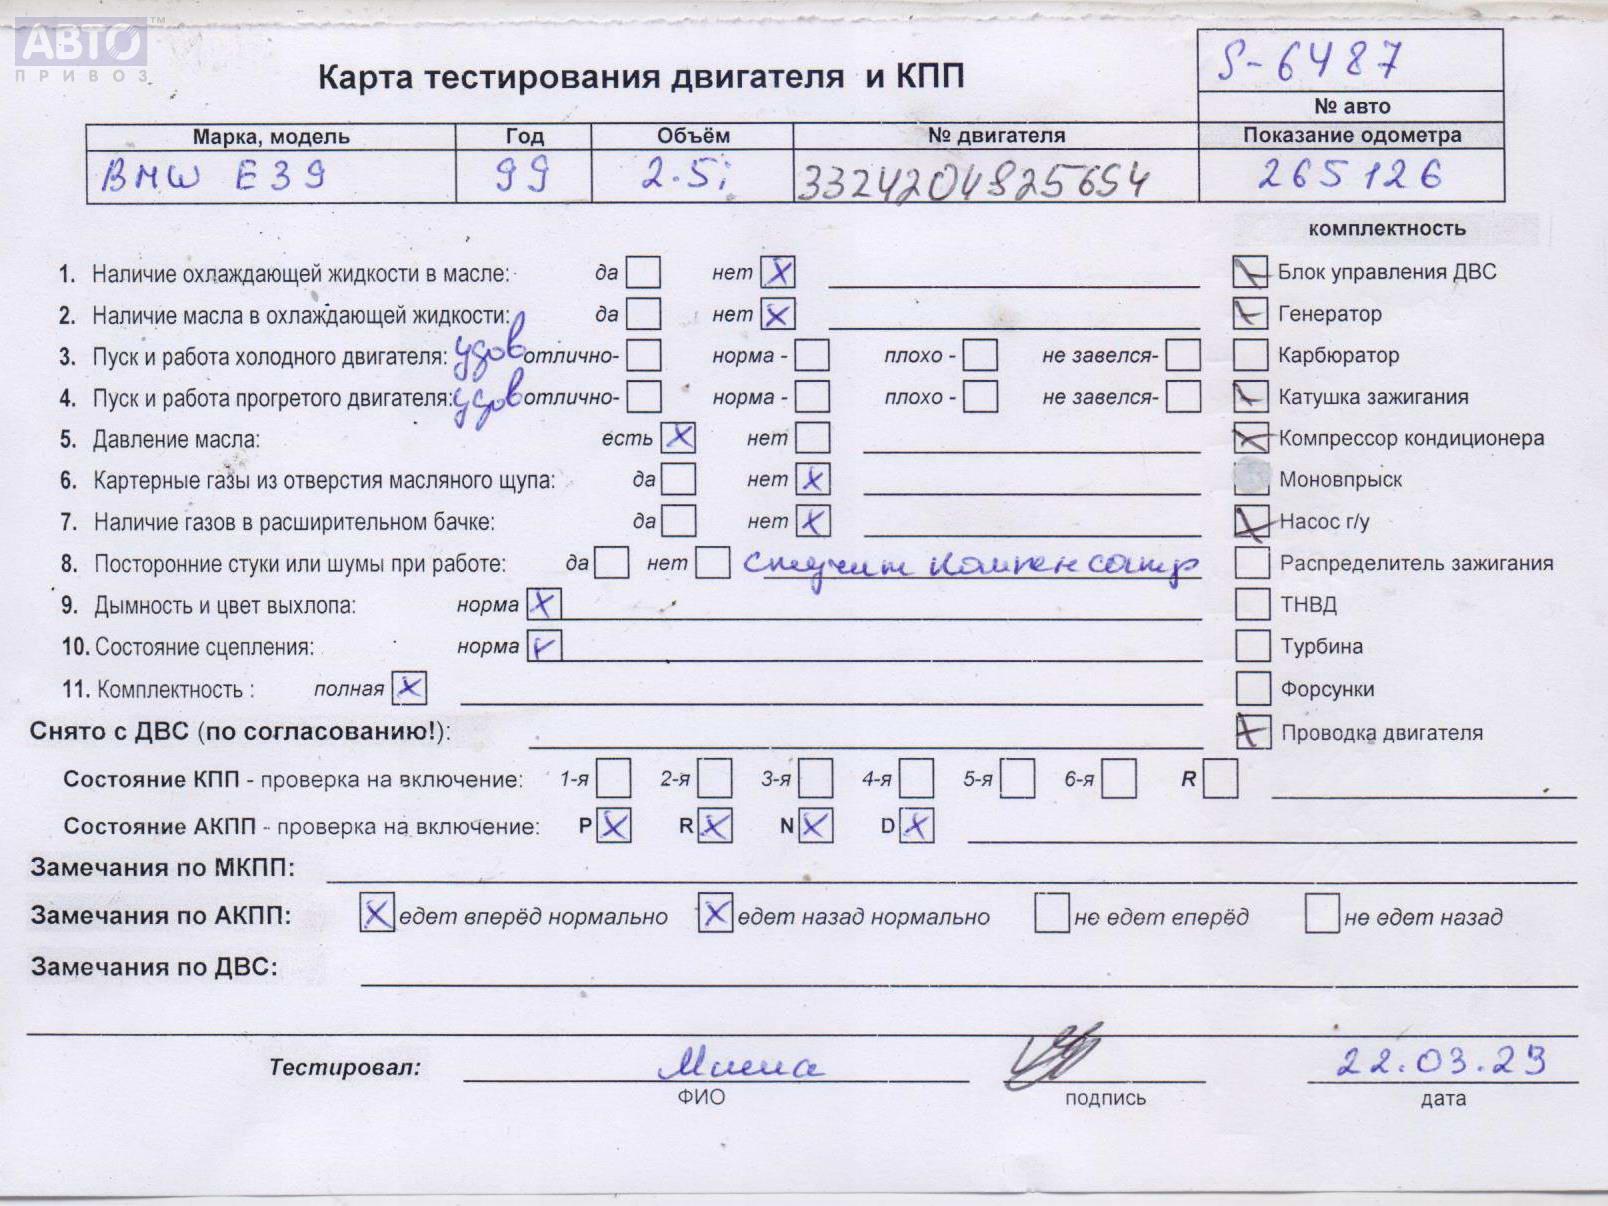 АВТО™
ПРИВОЗ
Карта тестирования двигателя и КПП
S-6487
№ авто
Марка, модель Год Объём № двигателя Показание одометра
BMW E39 99 2.5i 33242041825654 265126
комплектность
1. Наличие охлаждающей жидкости в масле: да нет X Блок управления ДВС
2. Наличие масла в охлаждающей жидкости: да нет X Генератор
3. Пуск и работа холодного двигателя: удов отлично- норма - плохо - не завелся- Карбюратор
4. Пуск и работа прогретого двигателя: удов отлично- норма - плохо - не завелся- Катушка зажигания
5. Давление масла: есть X нет Компрессор кондиционера
6. Картерные газы из отверстия масляного щупа: да нет X Моновпрыск
7. Наличие газов в расширительном бачке: да нет X Насос г/у
8. Посторонние стуки или шумы при работе: да нет стучит компенсатр Распределитель зажигания
9. Дымность и цвет выхлопа: норма X ТНВД
10. Состояние сцепления: норма Турбина
11. Комплектность : полная X Форсунки
Снято с ДВС (по согласованию!): Проводка двигателя
Состояние КПП - проверка на включение: 1-я 2-я 3-я 4-я 5-я 6-я R
Состояние АКПП - проверка на включение: P X R X N X D X
Замечания по МКПП:
Замечания по АКПП: X едет вперёд нормально X едет назад нормально не едет вперёд не едет назад
Замечания по ДВС:
Тестировал: Миша 22.03.23
ФИО подпись дата